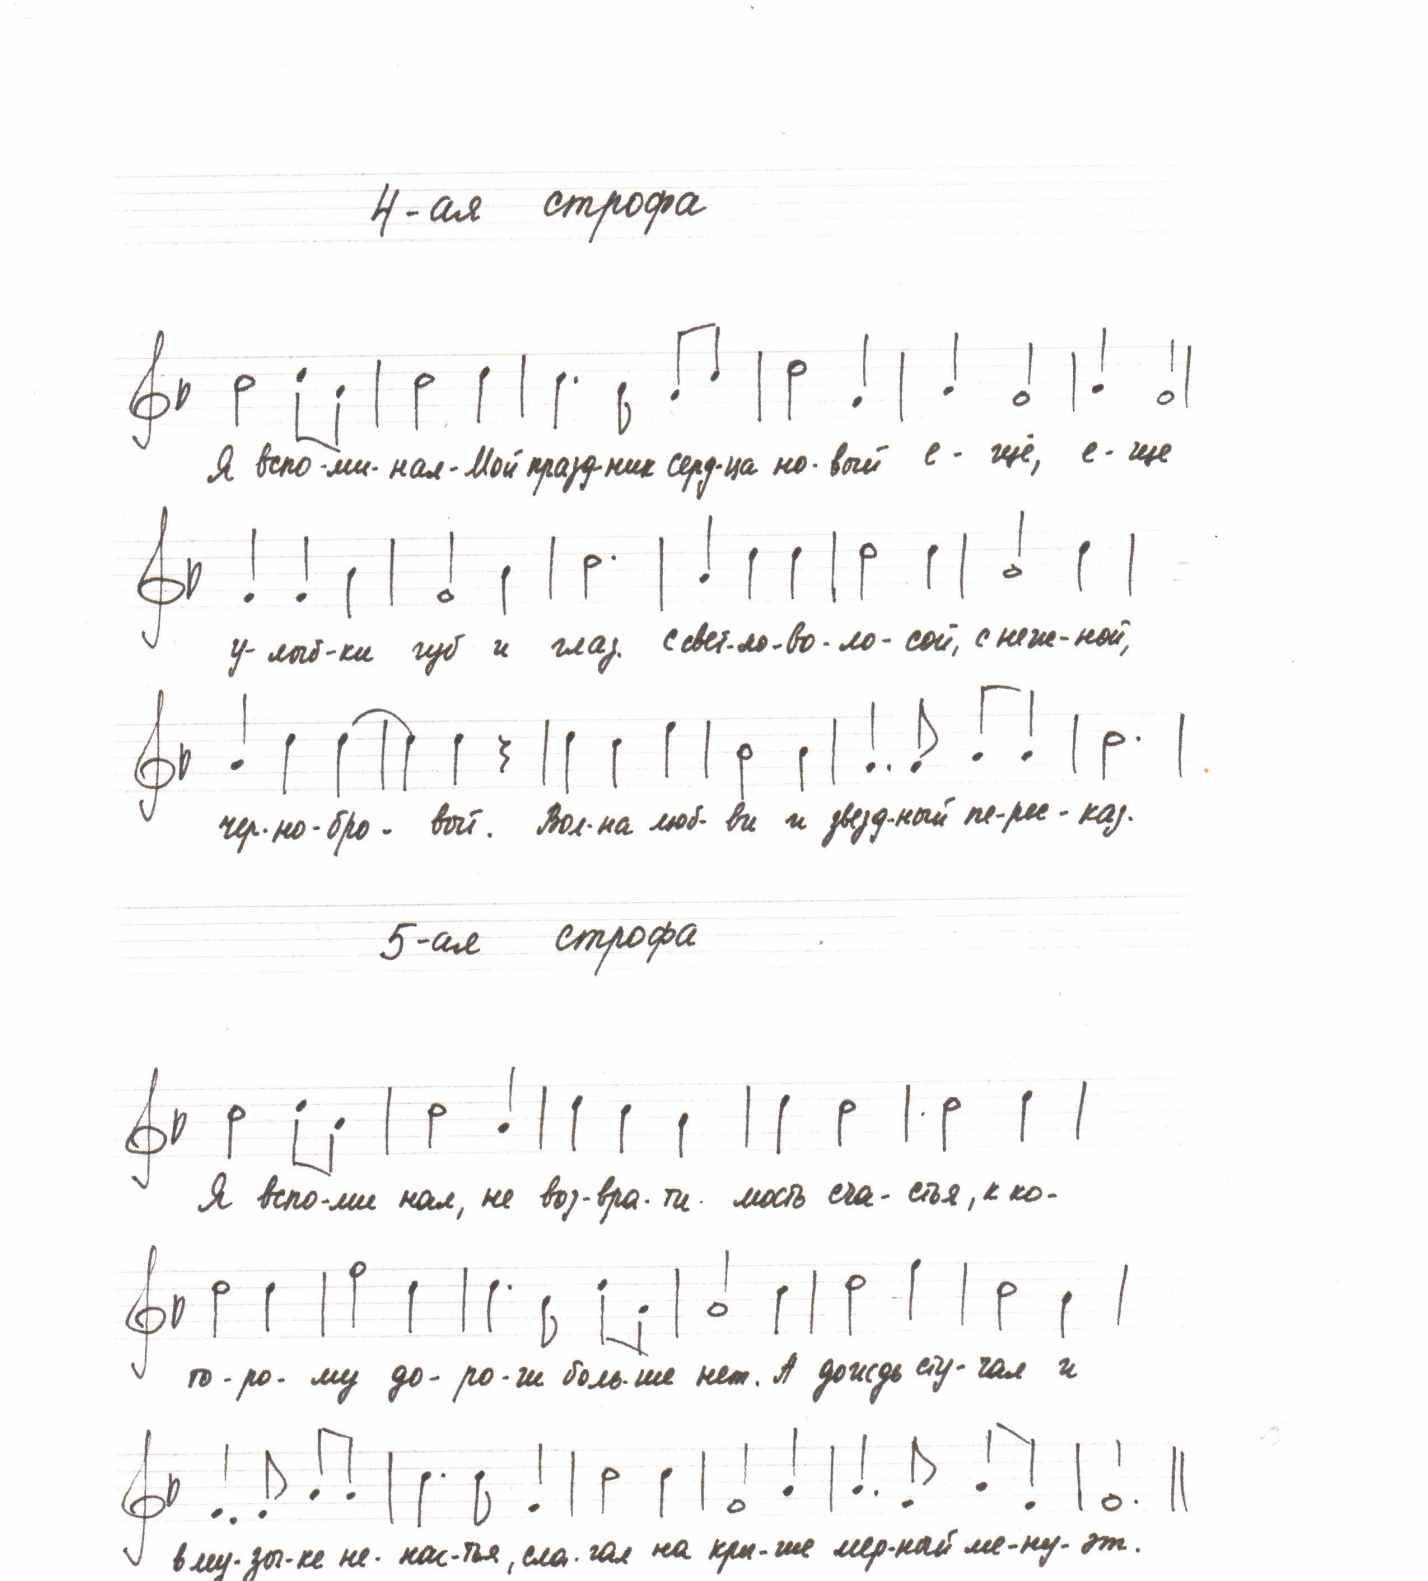 4-ая строфа
Я вспо-ми-нал-Мой празд-ник серд-ца но-вый е- щё, е- ще
у- лыб-ки губ и глаз. С свет-ло-во-ло-сой, с неж-ной,
чер-но-бро- вой. Вол-на люб- ви и звезд-ный пе-рес-каз.
5-ая строфа
Я вспо-ми нал, не воз-вра-ти- мость сча- стья, к ко-
то-ро- му до- ро-ги боль-ше нет. А дождь сту-чал и
в му-зы-ке не- нас-тья, сла-гал на кры-ше мер-ный ме-ну-эт.